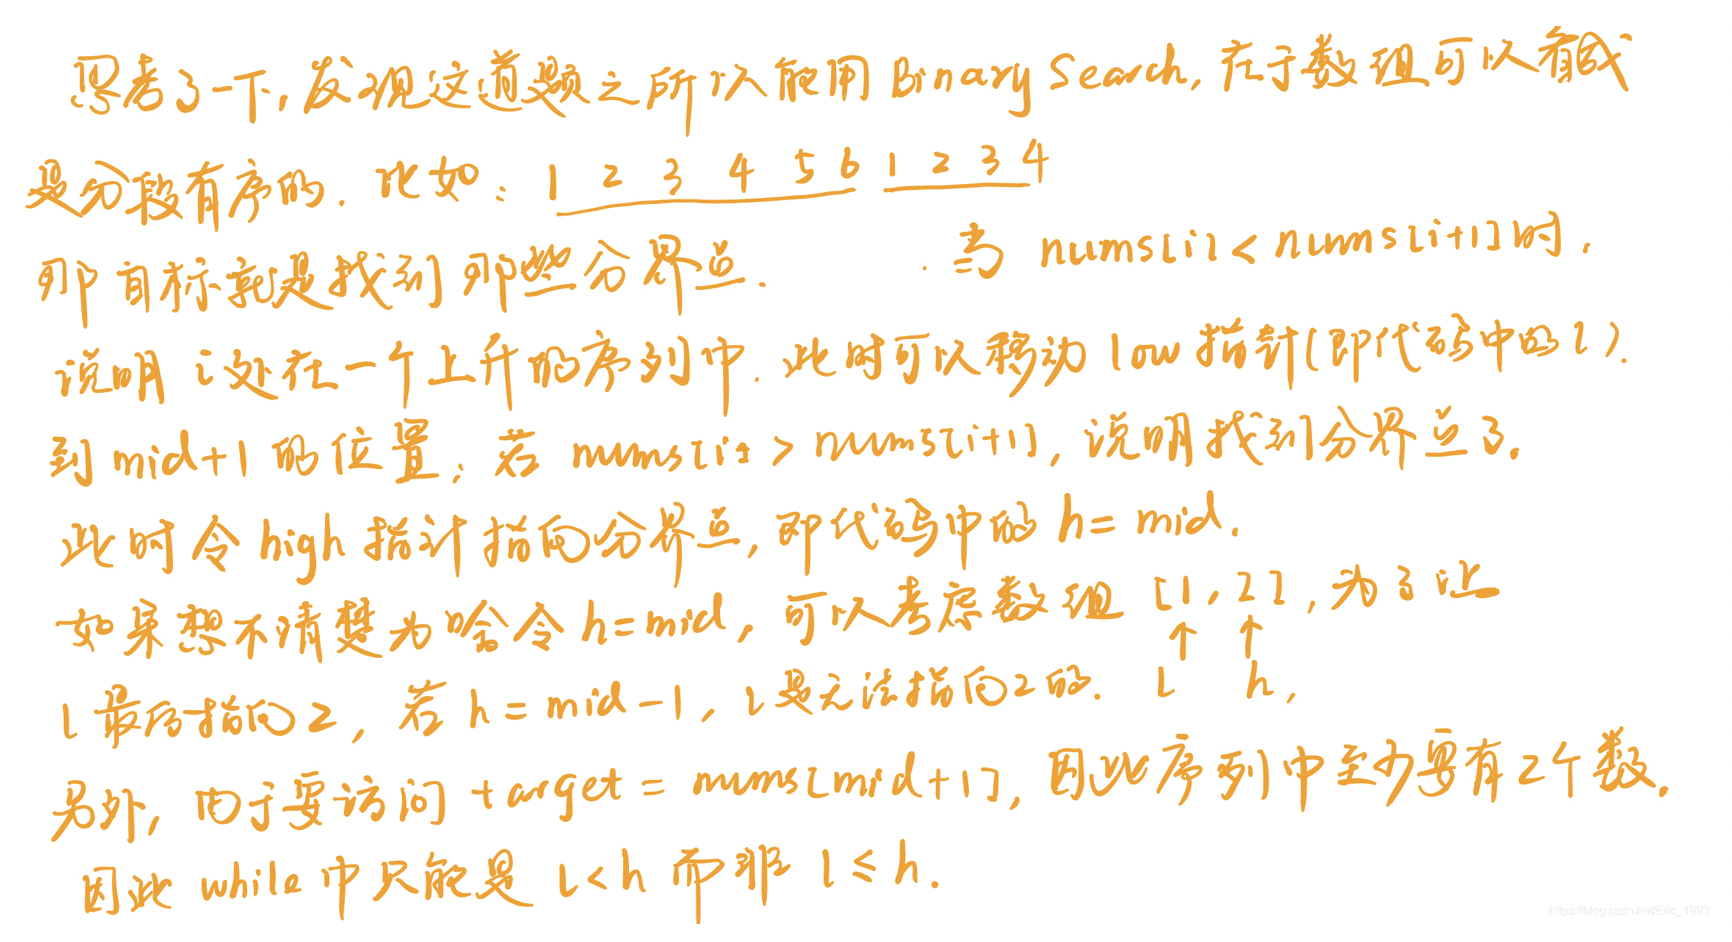 思考了一下,发现这道题之所以能用 Binary Search, 在于数组可以看成
是分段有序的. 比如: 1 2 3 4 5 6 1 2 3 4
那目标就是找到那些分界点. 当 nums[i] < nums[i+1] 时,
说明 i 处在一个上升的序列中. 此时可以移动 low 指针(即代码中的 l).
到 mid+1 的位置; 若 nums[i] > nums[i+1], 说明找到分界点了.
此时令 high 指针指向分界点, 即代码中的 h = mid.
如果想不清楚为啥令 h = mid, 可以考虑数组 [1, 2], 为了让
↑ ↑
l 最后指向 2, 若 h = mid - 1, l 是无法指向 2 的. l h,
另外, 由于要访问 target = nums[mid+1], 因此序列中至少要有 2 个数.
因此 while 中只能是 l < h 而非 l ≤ h.
https://blog.csdn.net/Eric_1993